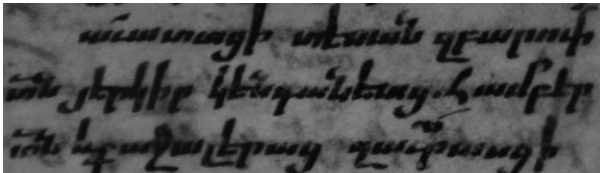 հաւատացի տեսան զբարութի
տն յերկիր կենդանեաց. Համբեր
տն և քաջալերեաց զաւրասցի